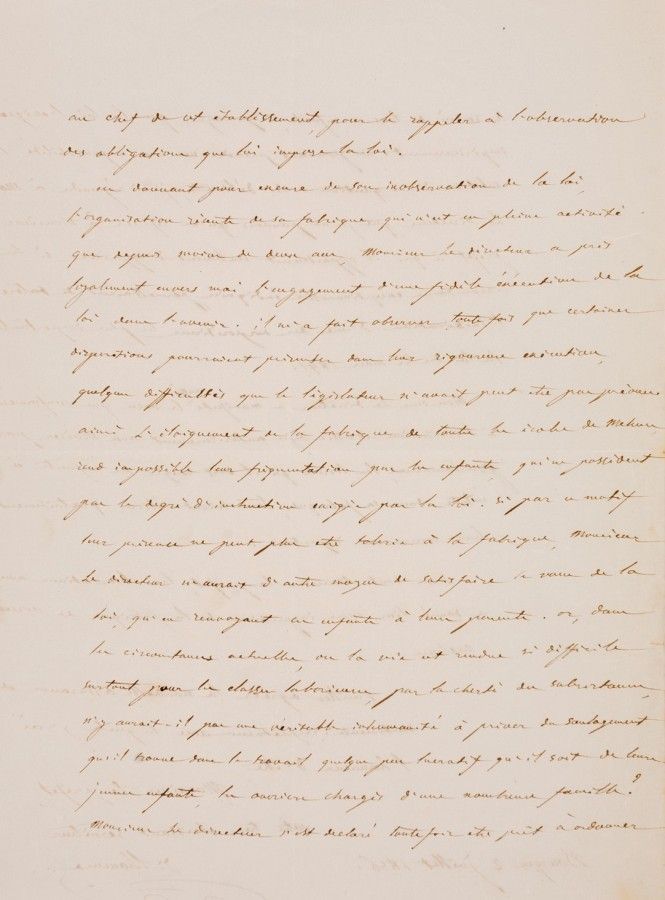 au chef de cet établissement, pour le rappeler à l'observation
des obligations que lui impose la loi.
en donnant pour excuse de son inobservation de la loi,
l'organisation récente de sa fabrique, qui n'est en pleine activité
que depuis moins de deux ans, Monsieur Le directeur a pris
également envers moi l'engagement d'une fidèle éxécution de la
loi dans l'avenir. il m'a fait observer, toutefois que certaines
dispositions pourraient présenter dans leur rigoureuse exécution,
quelques difficultés que le législateur n'avait peut etre pas prévues.
ainsi L'éloignement de la fabrique de toutes les écoles de Mehun
rend impossible leur fréquentation par les enfants, qui ne possèdent
pas le degré d'instruction exigée par la loi. si par ce motif
leur présence ne peut plus etre tolérée à la fabrique, Monsieur
Le directeur n'aurait d'autre moyen de satisfaire le voeu de la
loi, qu'en renvoyant ces enfants à leurs parents. or, dans
les circonstances actuelles, ou la vie est rendue si difficile
surtout pour les classes laborieuses, par la cherté des subsistances,
n'y aurait-il pas une véritable inhumanité à priver du soulagement
qu'il trouve dans le travail quelque peu lucratif qu'il soit de leurs
jeunes enfants, les ouvriers chargés d'une nombreuse famille?
Monsieur Le directeur s'est déclaré toutefois etre prêt à ordonner